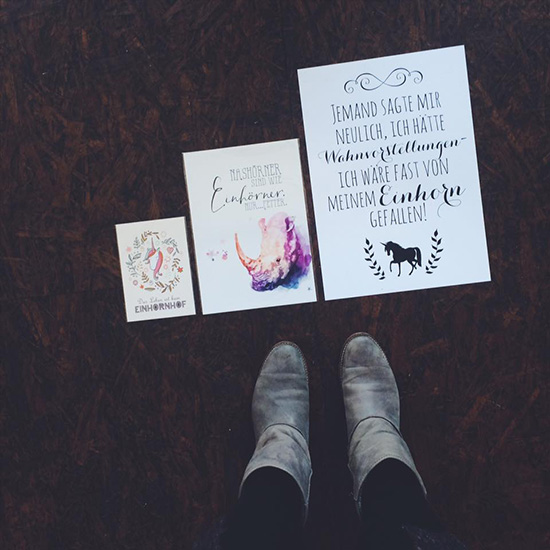 Das Leben ist kein
EINHORNHOF
NASHÖRNER
SIND WIE
Einhörner,
NUR... FETTER.
JEMAND SAGTE MIR
NEULICH, ICH HÄTTE
Wahnvorstellungen-
ICH WÄRE FAST VON
MEINEM Einhorn
GEFALLEN!